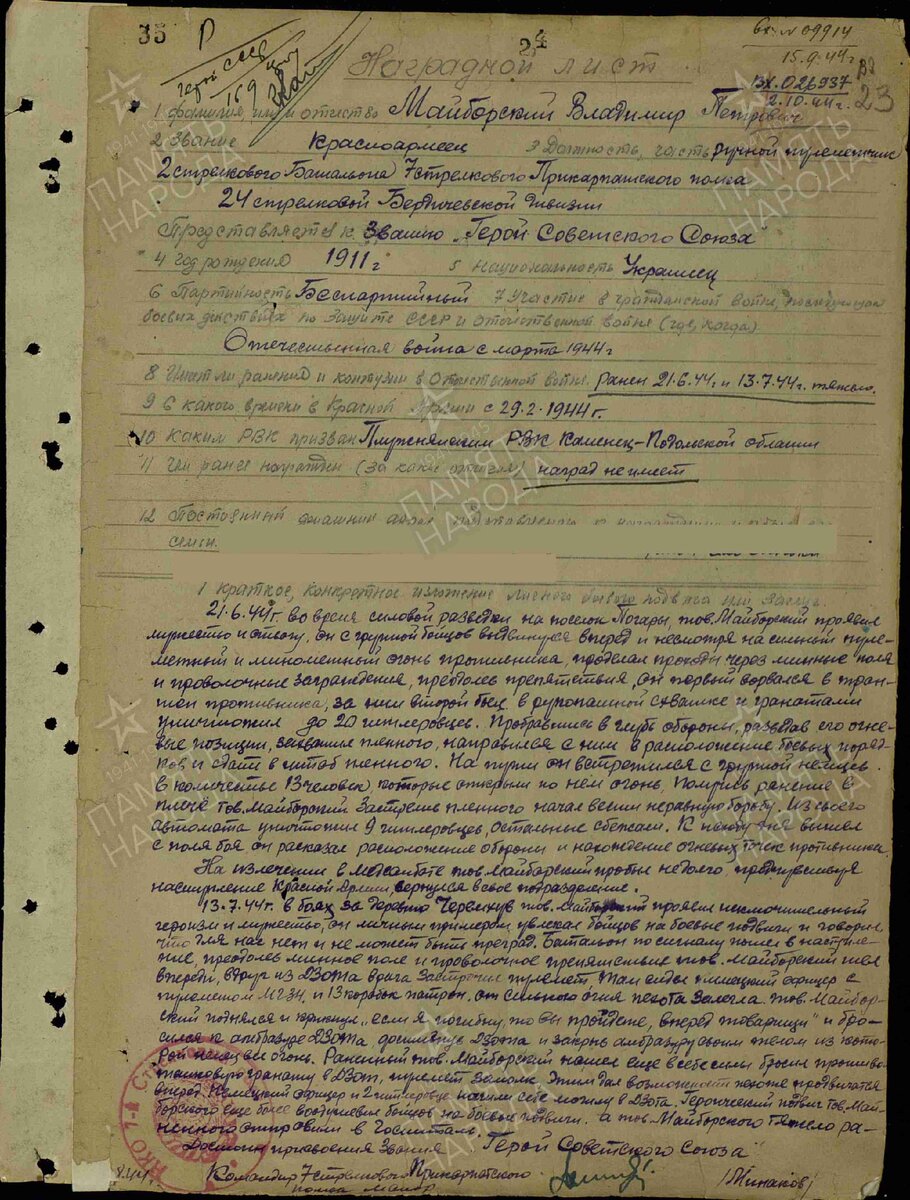 35 Р 24 вх. № 09914
15.9.44г
герой СССР вх. 026937
169 2.10.44г. 23
Наградной лист
1 фамилия, имя и отчество Майборский Владимир Петрович
2 Звание Красноармеец 3 Должность, часть ручной пулеметчик
2 стрелкового Батальона 7 стрелкового Прикарпатского полка
24 стрелковой Бердичевской дивизии
Представляется к Званию "Герой Советского Союза
4 Год рождения 1911 г 5 Национальность Украинец
6 Партийность Беспартийный 7 Участие в гражданской войне, последующих
боевых действиях по защите СССР и отечественной войне (где, когда)
Отечественная война с марта 1944 г
8 Имеет ли ранения и контузии в Отечественной войне ранен 21.6.44г. и 13.7.44г. тяжело.
9 С какого времени в Красной Армии с 29.2.1944г.
10 Каким РВК призван РВК Каменец-Подольской области
11 Чем ранее награжден (за какие отличия) наград не имеет
12 Постоянный домашний адрес представляемого к награждению и адрес его
семьи.
1 Краткое, конкретное изложение личного боевого подвига или заслуг.
21.6.44г. во время силовой разведки на поселок Погары, тов. Майборский проявил
мужество и отвагу. он с группой бойцов выдвинулся вперед и несмотря на сильный пуле-
метный и минометный огонь противника, проделал проходы через минные поля
и проволочные заграждения, преодолев препятствия, он первый ворвался в тран-
шеи противника, за ним второй боец, в рукопашной схватке и гранатами
уничтожил до 20 гитлеровцев. Пробравшись в глубь обороны, разведав его огне-
вые позиции, захватил пленного, направился с ним в расположение боевых поряд-
ков и сдать в штаб пленного. На пути он встретился с группой немцев
в количестве 13 человек, которые открыли по нем огонь, получив ранение в
плечо тов. Майборский Застрелив пленного начал вести неравную борьбу. Из своего
автомата уничтожил 9 гитлеровцев, остальные сбежали. К исходу дня вышел
с поля боя он рассказал расположение обороны и нахождение огневых точек противника.
На излечении в медсанбате тов. Майборский пробыл недолго
наступление Красной Армии вернулся в свое подразделение.
13.7.44г. в боях за деревню Червенув тов. Майборский проявил исключительный
героизм и мужество, он личным примером увлекал бойцов на боевые подвиги и говорил,
что для нас нет и не может быть преград. Батальон по сигналу пошел в наступле-
ние, преодолев минное поле и проволочное препятствие тов. Майборский шел
впереди, вдруг из ДЗОТа врага застрочил пулемет, Там сидел немецкий офицер с
пулеметом МГ-34, и 13 коробок патрон, от сильного огня пехота залегла. тов. Майбор-
ский поднялся и крикнул "если я погибну, то вы пройдете, вперед товарищи" и бро-
сился к амбразуре ДЗОТа, достигнув ДЗОТа и закрыв амбразуру своим телом из кото-
рой немец вел огонь. Раненный тов. Майборский нашел еще в себе силы бросил противо-
танковую гранату в ДЗОТ, пулемет замолк. Этим дал возможность пехоте продвигаться
вперед. Немецкий офицер и 2 гитлеровца нашли себе могилу в ДЗОТе. Героический подвиг тов. Май-
борского еще более воодушевил бойцов на боевые подвиги. а тов. Майборского тяжело ра-
ненного отправили в госпиталь.
Достоин присвоения Звания "Герой Советского Союза"
Командир 7 стрелкового Прикарпатского
полка майор (Минаков)
НКО 7-й Стрелковый